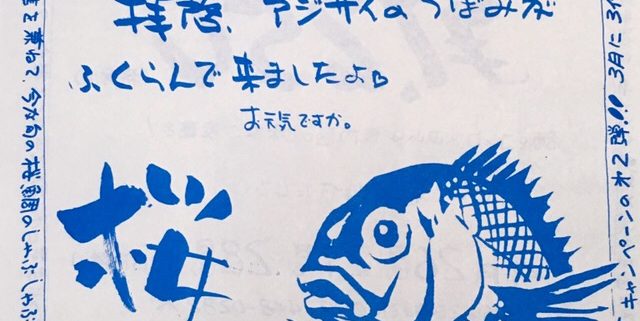 拝啓、アジサイのつぼみが
ふくらんで来ましたよ♡
お元気ですか。
桜
を兼ねて、今が旬の桜鯛のしゃぶしゃぶ
キャンペーンの第2弾!! 3月に